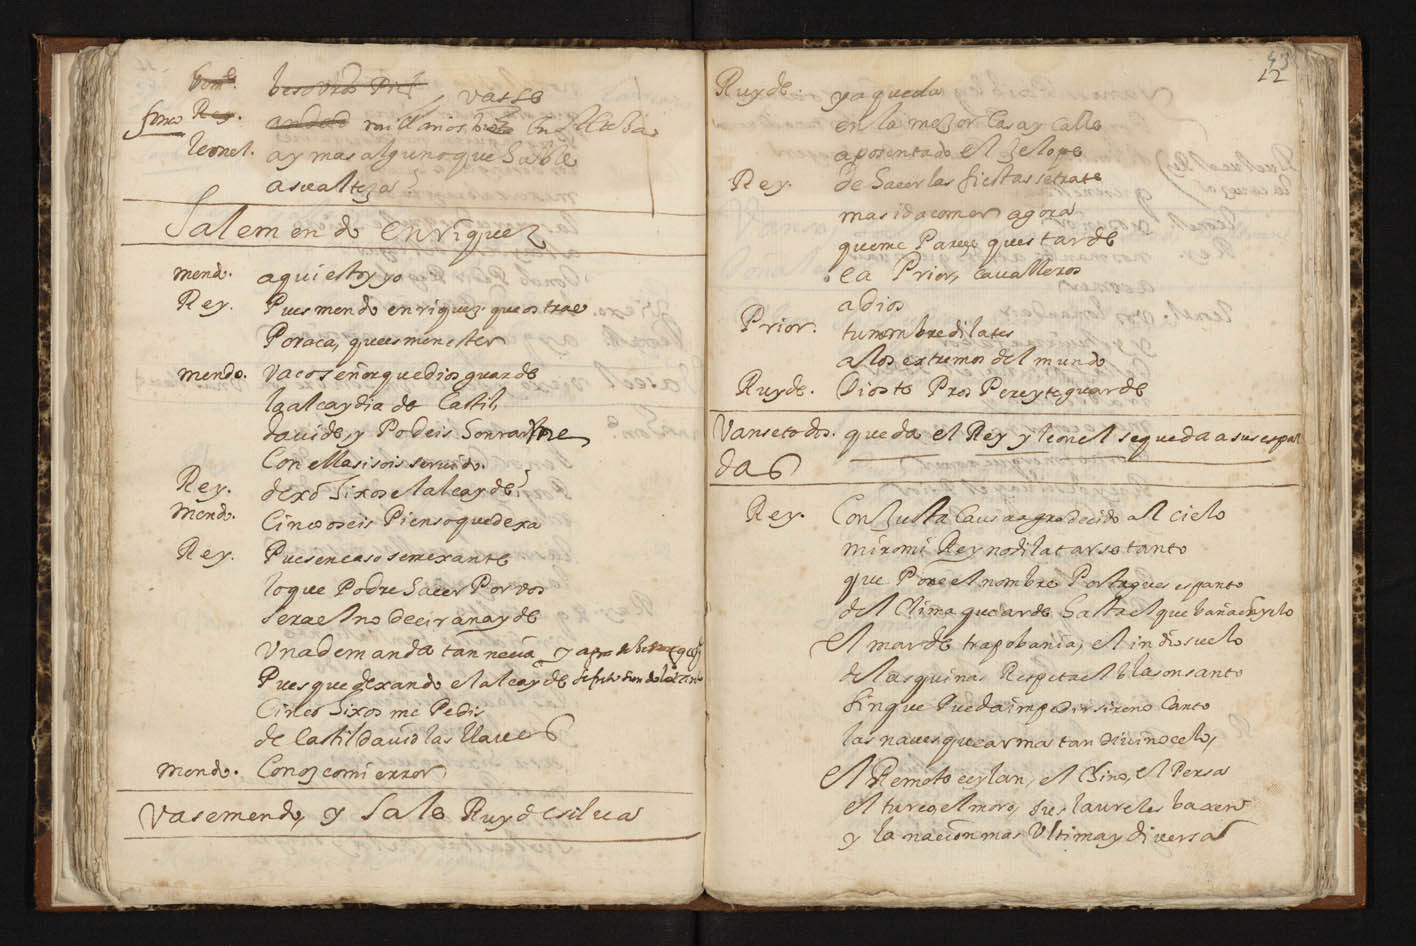 vasse
Rey. mill años, In
leonel. ay mas alguno que hable
a su alteza
Sale mendo enrriquez
mend. aqui estoy yo
Rey. Pues mendo enriquez. que os trae
Por aca, que es menester
mendo. vaco señor que dios guarde
la alcaydia de Castil,
dauid, y Podeis honrarme
Con ella si sois seruido.
Rey. dexo hixos el alcayde?
Mend. Cinco o seis Pienso que dexa
Rey. Pues en caso semexante
lo que Podre hacer Por vos
sera el no decir a nayde
Vna demanda tan necia y
Pues que dexando el alcayde
Cinco hixos me Pedis
de Castildauid las llaues
Mendo. Conozco mi error
Vase mendo, y Sale Ruy de silua
12
Ruy de. ya queda
en la mejor Casa y Calle
aposentado el
Rey. de hacer las fiestas se trate
mas id a comer agora
que me Parece ques tarde
ea Prior, caualleros
a dios
Prior. tu nombre dilates
a los extremos del mundo
Ruy de. Dios te Pros Pere y te guarde
Vanse todos. queda el Rey y leonel se queda a sus espal
das
Rey. Con Justa Causa agradecido al cielo
miro mi Reyno dilatarse tanto
que Pone el nombre Portugues espanto
del Clima que arde hasta el que baña en yelo
El mar de trapobania, el indio suelo
de las quinas Respeta el blason santo
sin que Pueda impedir sireno Canto
las naues que arma tan diuino celo,
El Remoto ceylan, el Chino, el Persa
el turco, el moro, sus laureles baxen
y la nacion mas Vltima y diuersa